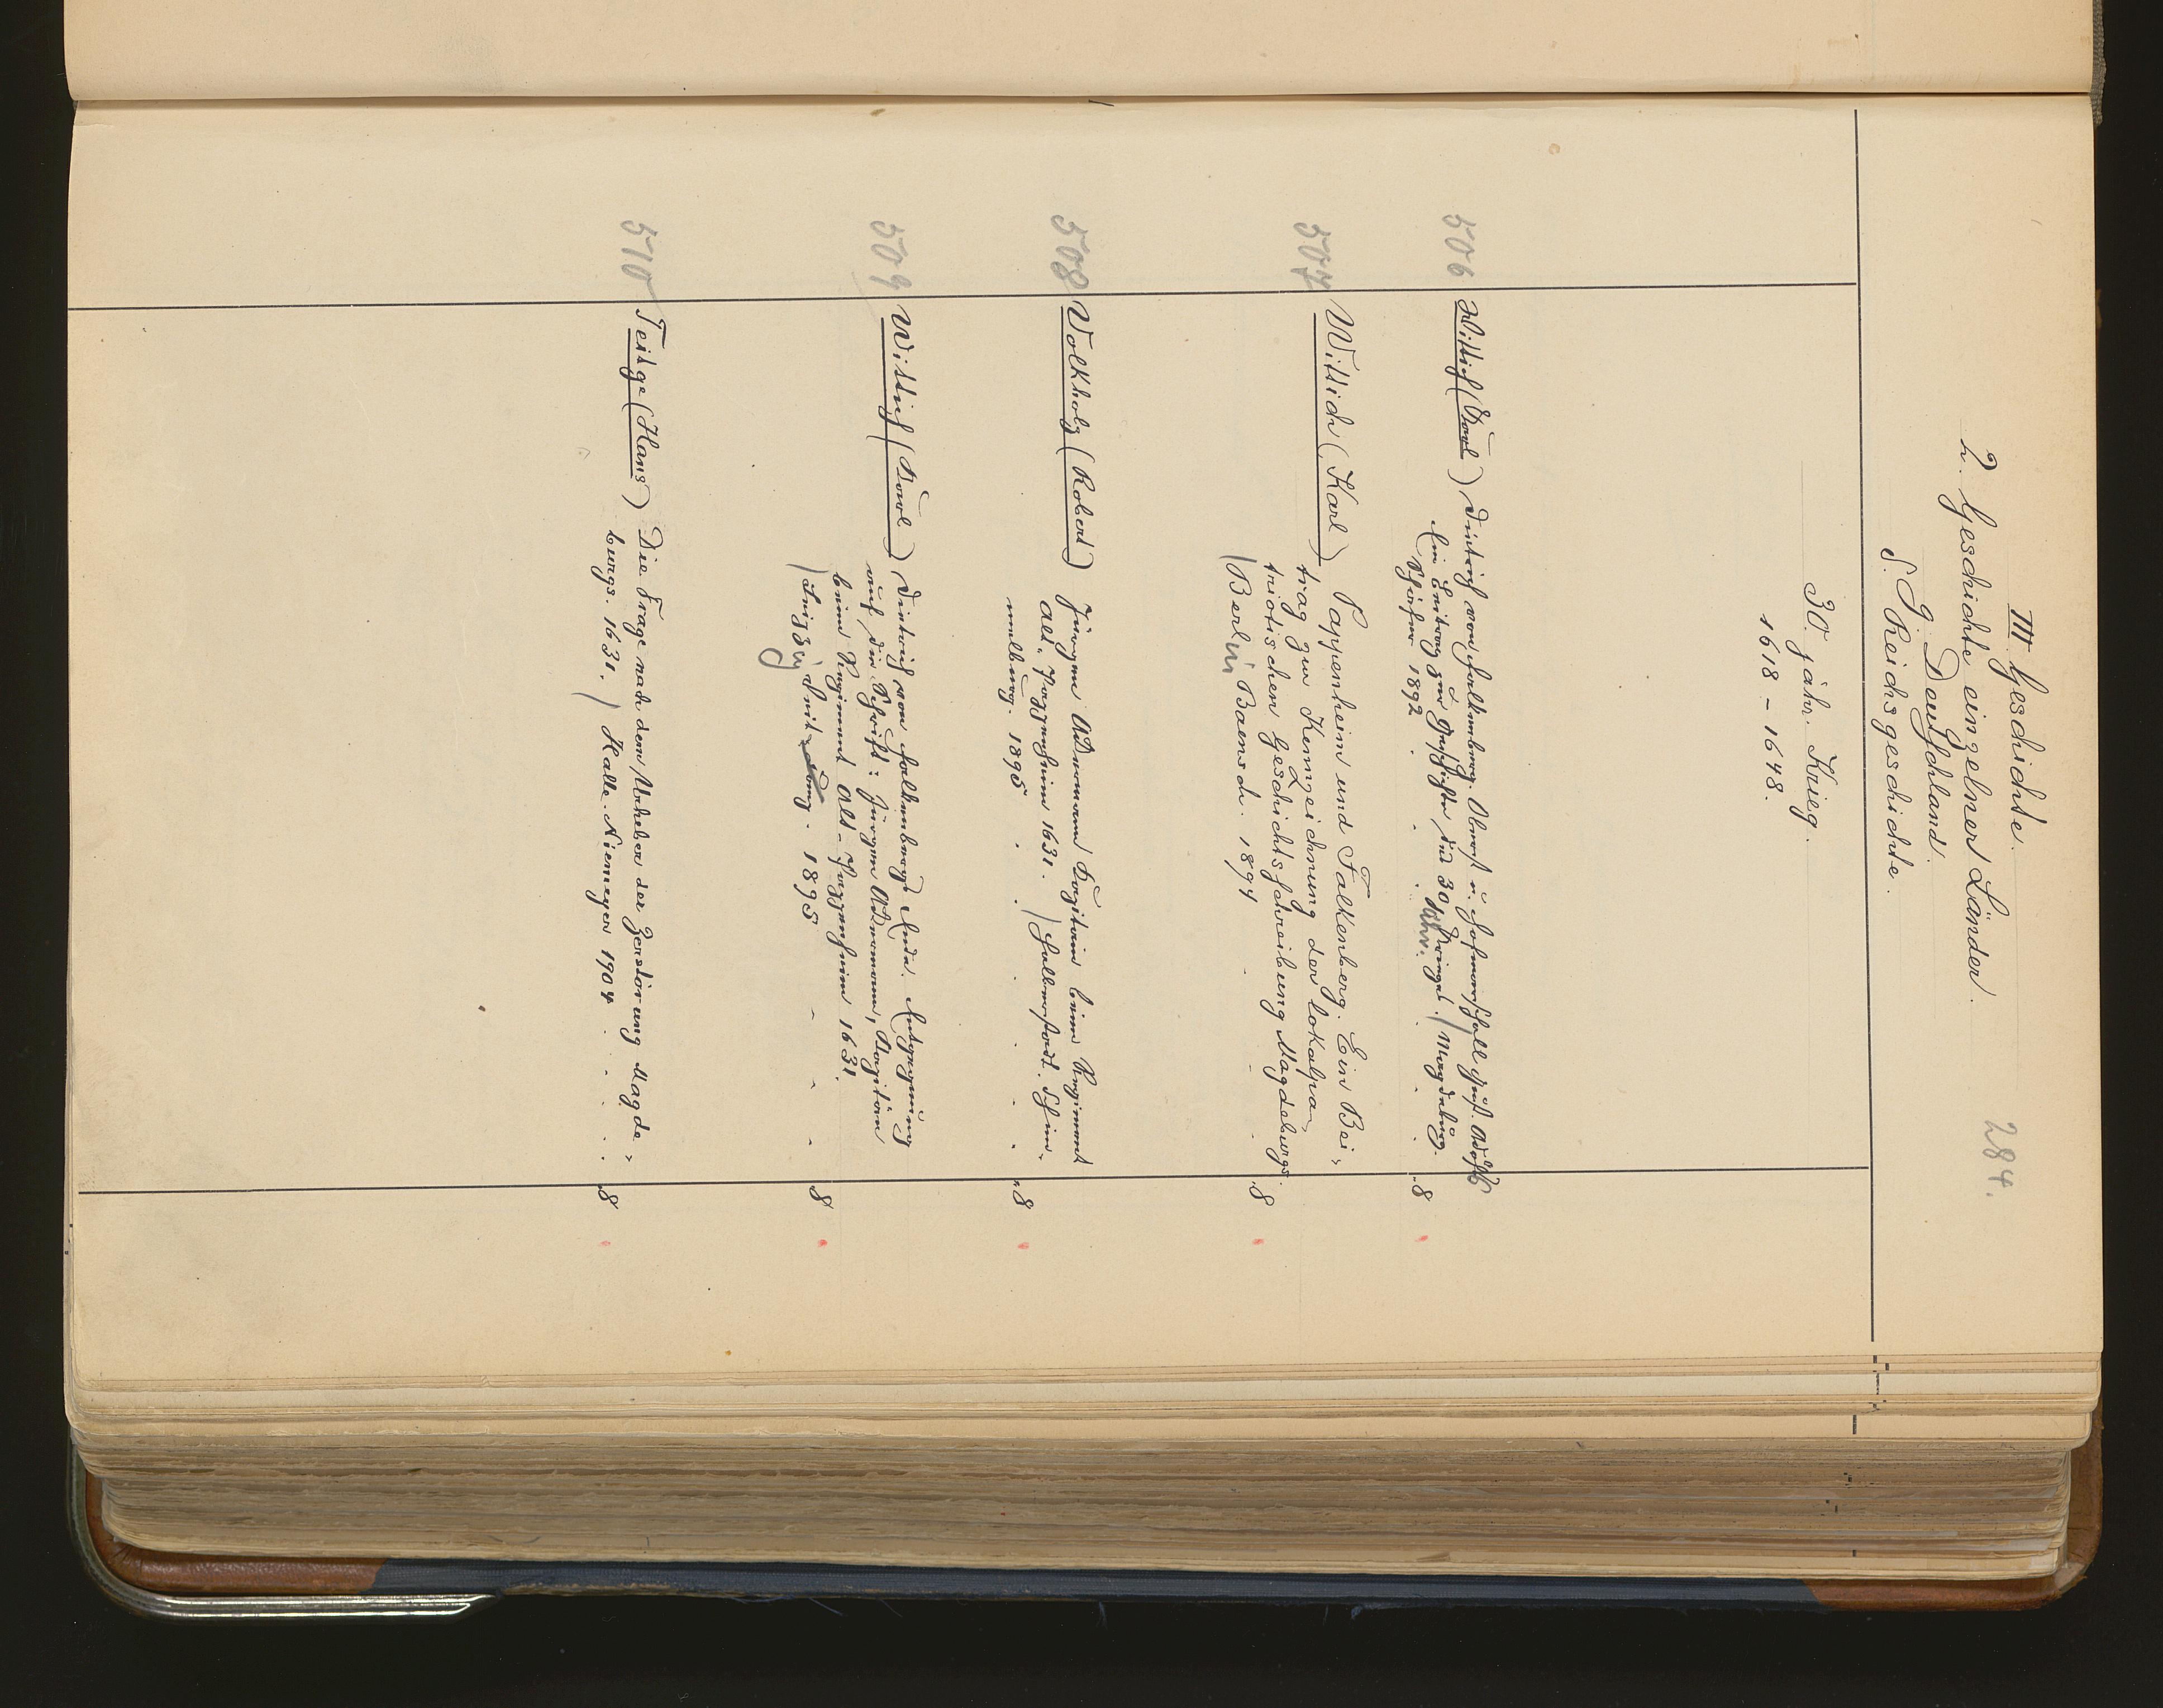 III. Geschichte.
284.
2. Geschichte einzelner Länder.
G. Deutschland.
S. Reichsgeschichte.
30. jähr. Krieg.
1618 - 1648.
506 Wittich (Karl) Dietrich von Falkenberg. Oberst u. Hofmarschall Gust. Adolfs
Ein Beitrag zur Geschichte des 30 jähr. Krieges. (Magdeburg.
Schäfer 1892 . . . . . 8
507 Wittich (Karl) Pappenheim und Falkenberg. Ein Bei-
trag zur Kennzeichnung der lokalpa-
triotischen Geschichtsschreibung Magdeburgs.
(Berlin Baensch. 1894 . . . 8
508 Volkholz (Robert) Jürgen Ackermann Kapitain beim Regiment
Alt. Pappenheim 1631. (Halberstadt. Schim-
melburg. 1895 . . . . . 8
509 Wittich (Karl) Dietrich von Falkenbergs Ende. Entgegnung
auf die Schrift: Jürgen Ackermann, Kapitän
beim Regiment Alt-Pappenheim 1631.
(Leipzig Veit 1895 . . . 8
510 Teitge (Hans) Die Frage nach dem Urheber der Zerstörung Magde-
burgs. 1631. (Halle. Niemeyer 1904 . . . . 8